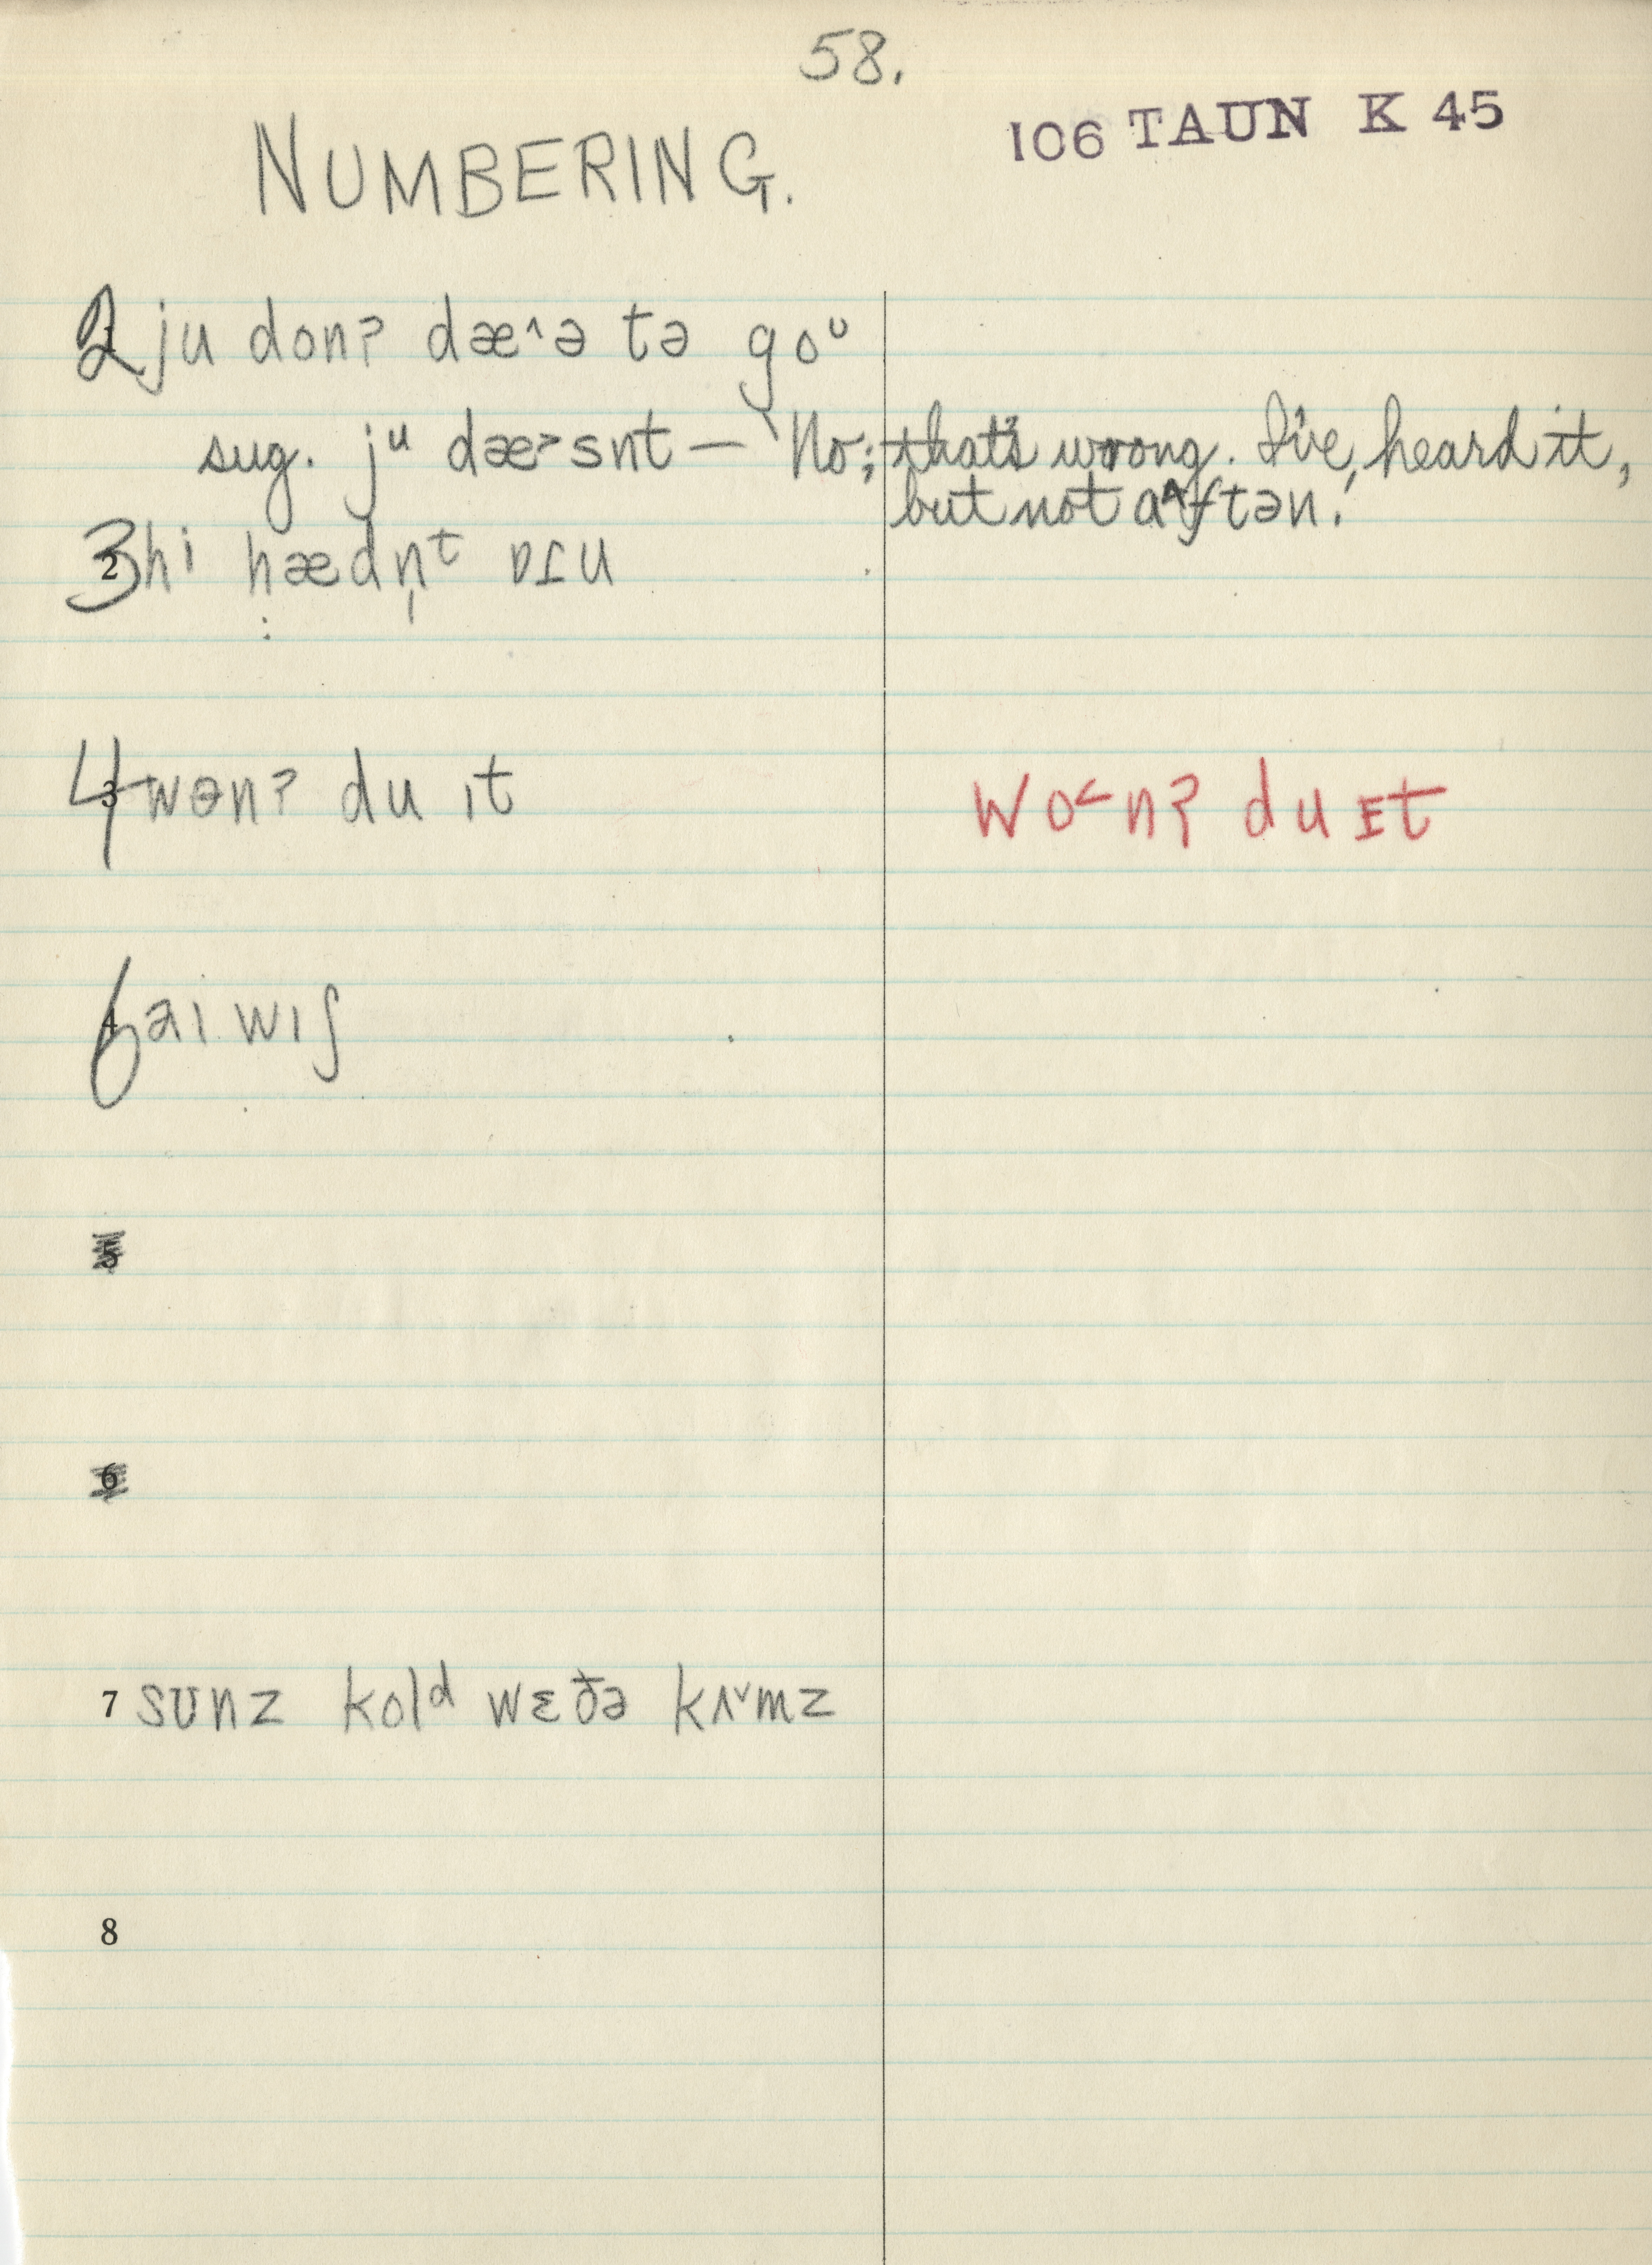 58.
106 TAUN K 45
NUMBERING.
2 ju donʔ dæ˄ə tə goᶷ
sug. jᵘ dæ˃snt — `No; that's wrong. I've heard it,
but not ɑ˄ftən.'
3 hi hædn̩ᵗ
4 wɵnʔ du ɪt
wo˂nʔ du ɪt
6 aɪ wɪʃ
5
6
7 sʊnz kolᵈ wɛðə kʌ˅mz
8